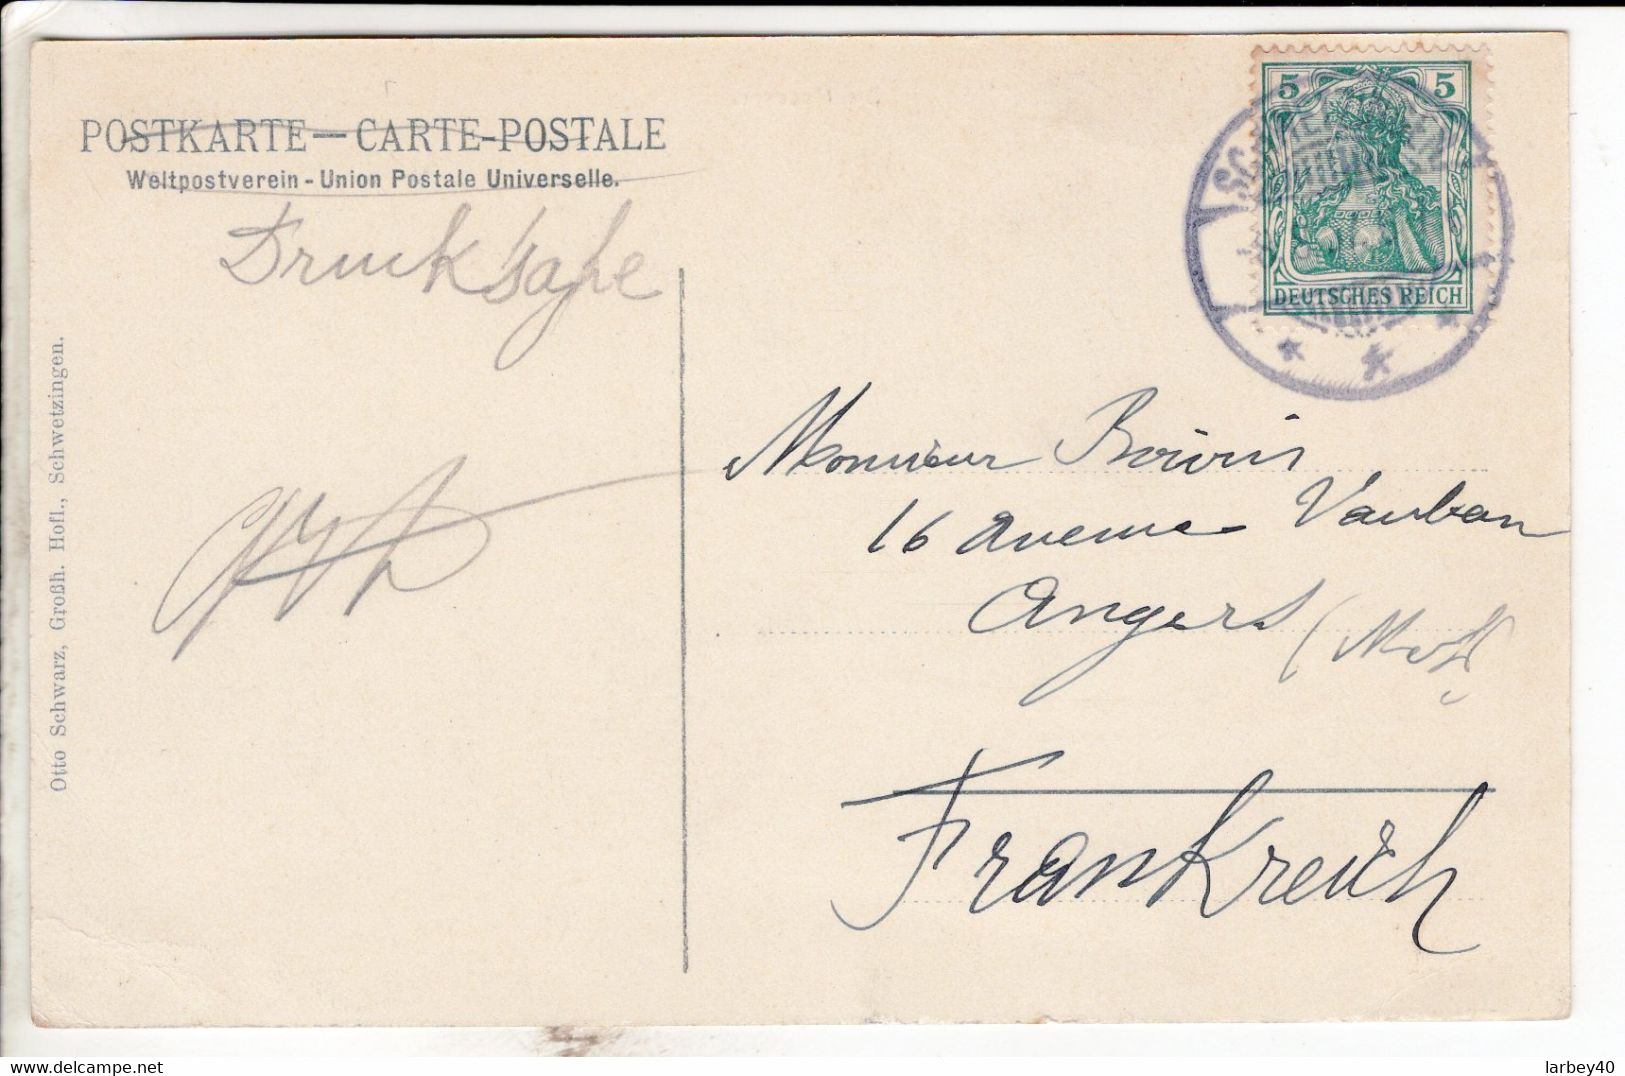 POSTKARTE — CARTE-POSTALE
Weltpostverein - Union Postale Universelle.
Drucksache
Otto Schwarz, Großh. Hofl., Schwetzingen.
5 5
DEUTSCHES REICH
Monsieur
16 avenue Vauban
Angers
Frankreich
larbey40